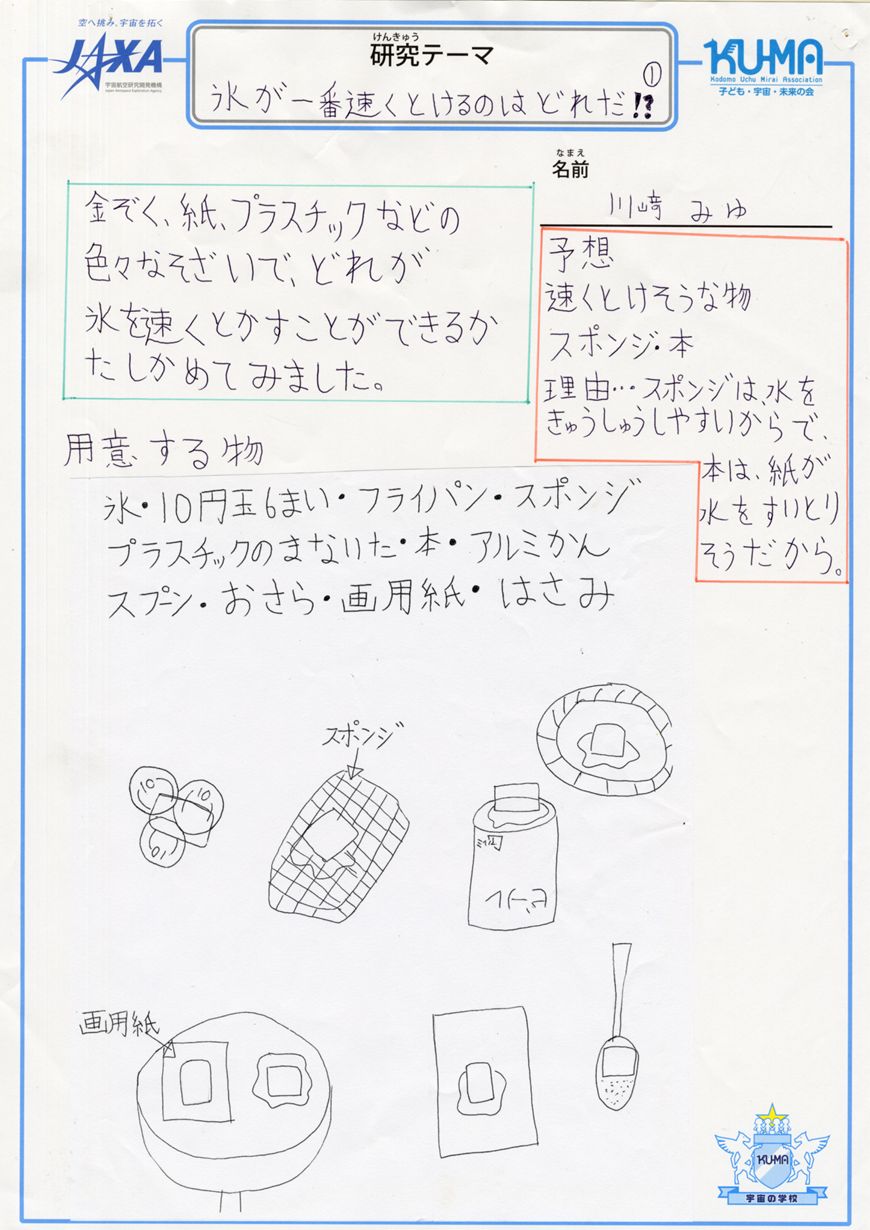 空へ挑み、宇宙を拓く
JAXA
宇宙航空研究開発機構
Japan Aerospace Exploration Agency
けんきゅう
研究テーマ
①
氷が一番速くとけるのはどれだ!?
KU-MA
Kodomo Uchu Mirai Association
子ども・宇宙・未来の会
なまえ
名前
川﨑 みゆ
金ぞく、紙、プラスチックなどの
色々なそざいで、どれが
氷を速くとかすことができるか
たしかめてみました。
予想
速くとけそうな物
スポンジ・本
理由…スポンジは、水を
きゅうしゅうしやすいからで、
本は、紙が
水をすいとり
そうだから。
用意する物
氷・10円玉6まい・フライパン・スポンジ
プラスチックのまないた・本・アルミかん
スプーン・おさら・画用紙・はさみ
スポンジ
10
10
10
画用紙
KU-MA
宇宙の学校